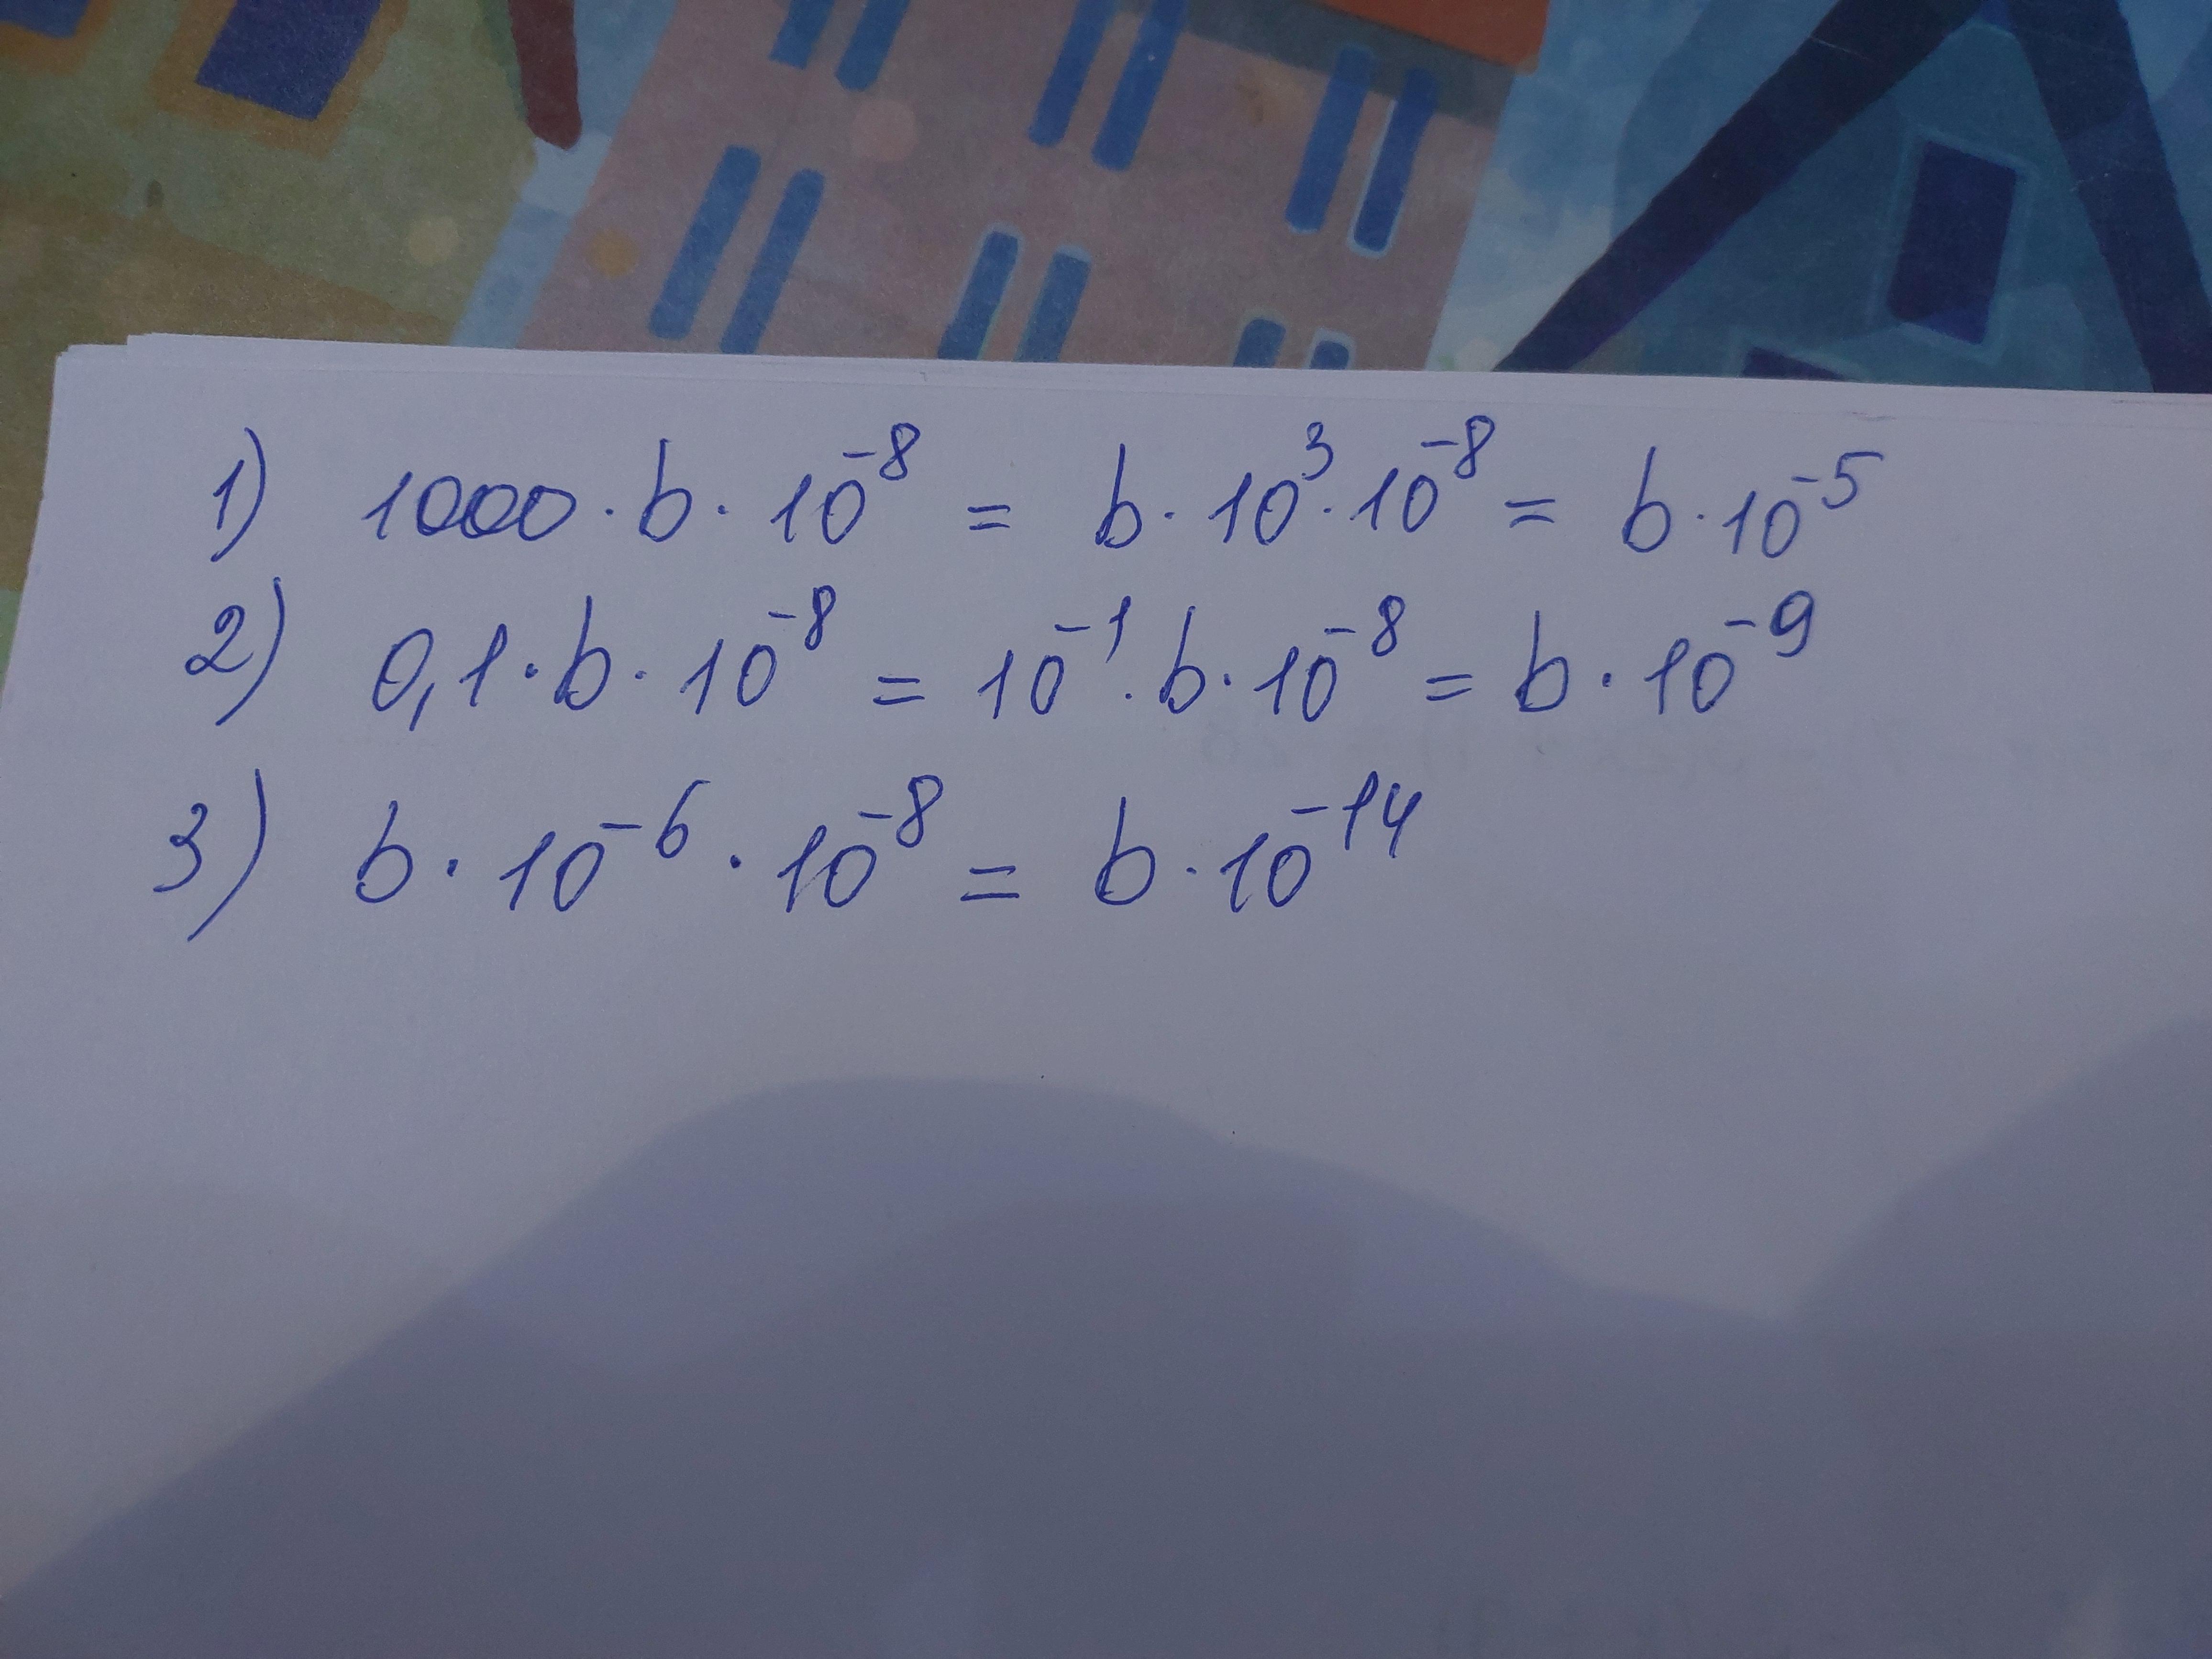 1) 1000 · b · 10⁻⁸ = b · 10³ · 10⁻⁸ = b · 10⁻⁵
2) 0,1 · b · 10⁻⁸ = 10⁻¹ · b · 10⁻⁸ = b · 10⁻⁹
3) b · 10⁻⁶ · 10⁻⁸ = b · 10⁻¹⁴